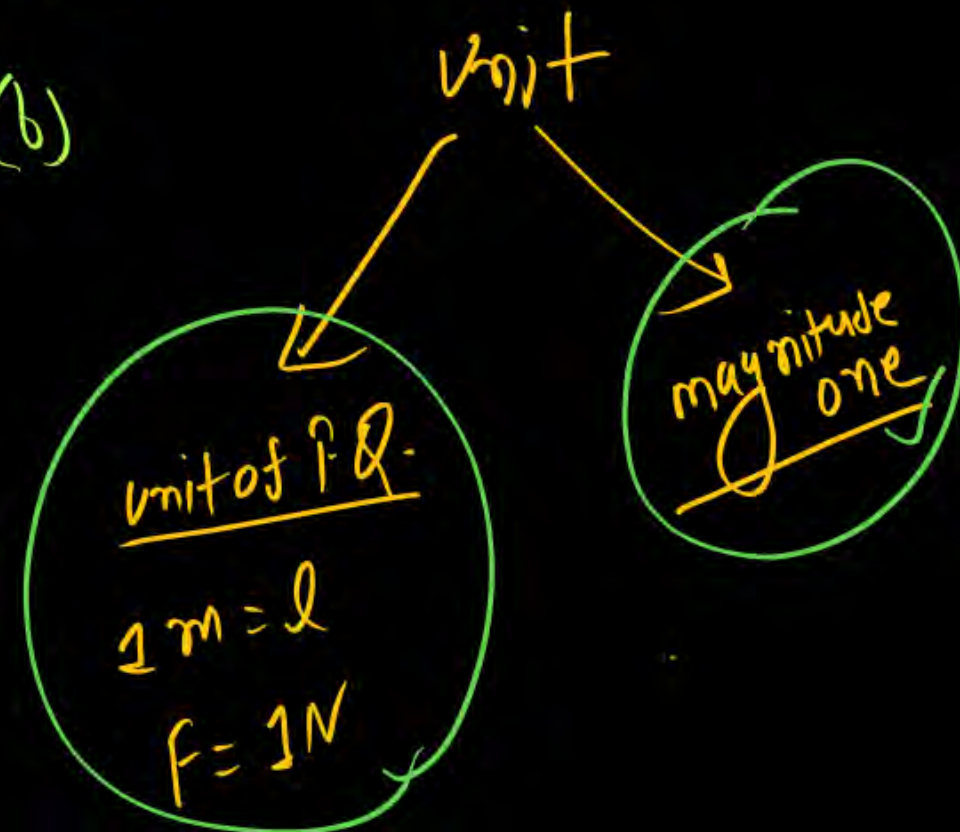 (b)
Unit
unit of P Q.
1 m = l
F = 1N
magnitude
one